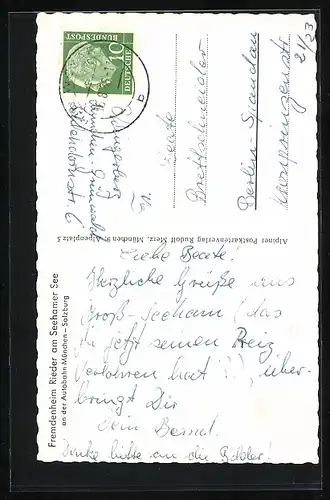 Fremdenheim Rieder am Seehamer See
an der Autobahn München–Salzburg
Liebe Beate!
Herzliche Grüße aus
Groß-Seeham (das
für jetzt seinen Reiz
verloren hat!), über-
bringt Dir
Dein Bernd.
Denke bitte an die Bilder!
Alpiner Postkartenverlag Rudolf Merz, München 9, Alpenplatz 5
DEUTSCHE
BUNDESPOST
10
München-Grünwald
Frl.
Beate
Brettschneider
Berlin-Spandau
21/23